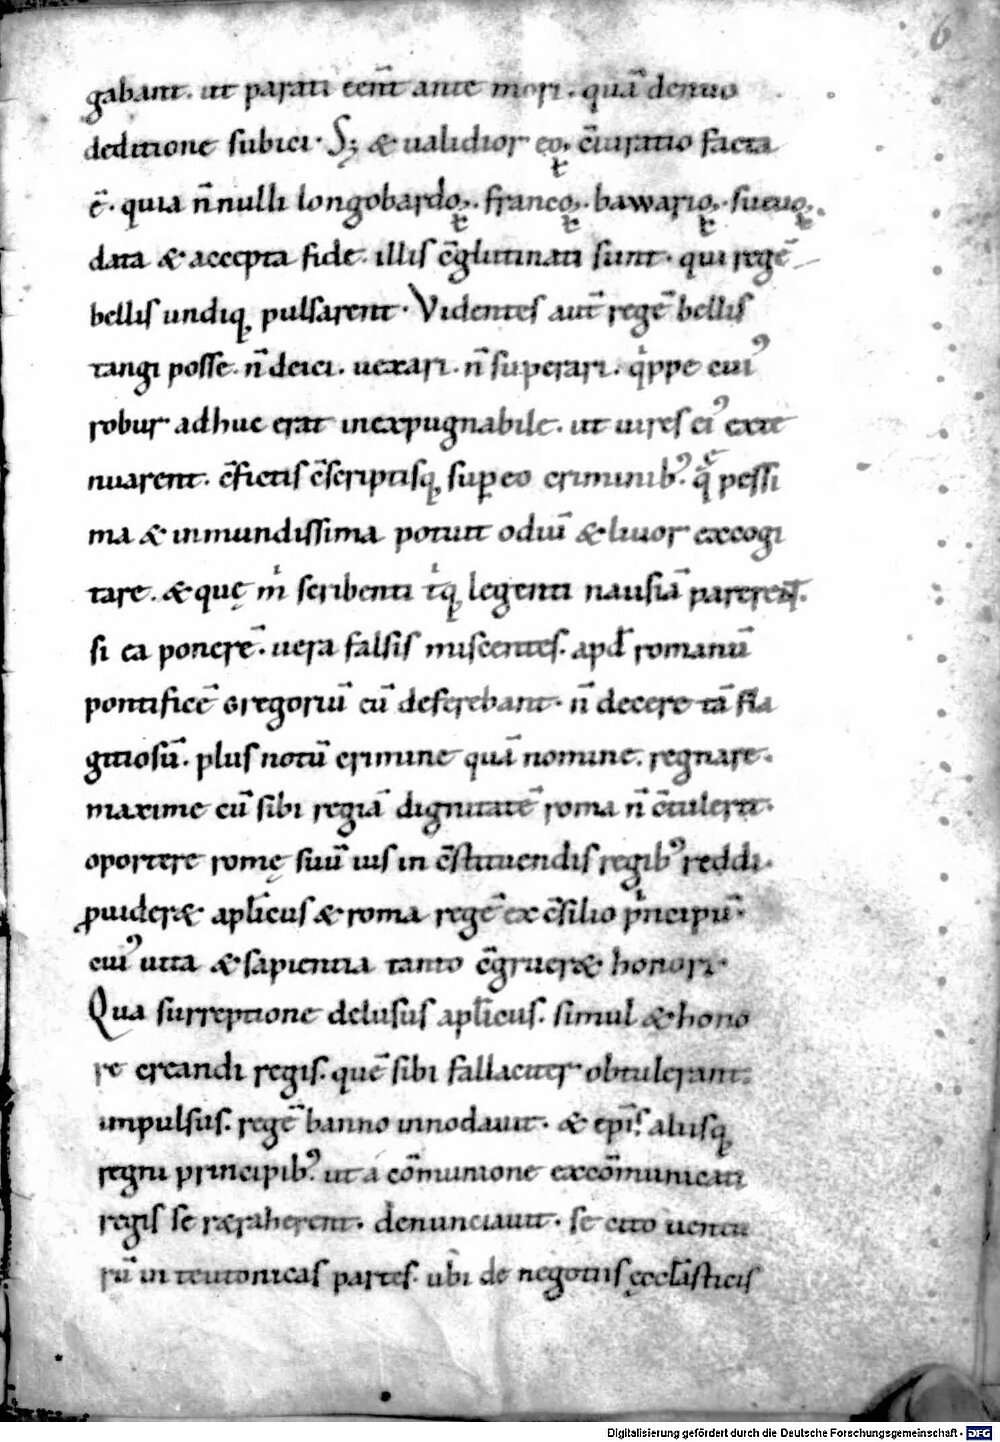 6
gabant. ut parati eēnt ante mori. quā denuo
deditione subici. Sꝫ & ualidior eoꝝ c̄iuratio facta
ē. quia n̄nulli longobardoꝝ. francoꝝ. bawarioꝝ. sueuoꝝ.
data & accepta fide. illis c̄glutinati sunt. qui regē
bellis undiqꝫ pulsarent. Videntes aut̄ regē bellis
tangi posse. n̄ deici. uexari. n̄ superari. qͥppe cuiꝰ
robur adhuc erat inexpugnabile. ut uires eiꝰ exte
nuarent. c̄fictis c̄scriptisqꝫ suꝑ eo criminibꝰ. q̄ pessi
ma & inmundissima potuit odiū & liuor excogi
tare. & quę mͥ scribenti tͥqꝫ legenti nausiā parerent.
si ea ponerē. uera falsis miscentes. apd̄ romanū
pontificē Gregoriū eū deferebant. n̄ decere tā fla
gitiosū. plus notū crimine quā nomine. regnare.
maxime cū sibi regiā dignitatē roma n̄ c̄tulerit.
oportere romę suū ius in c̄stituendis regibꝰ reddi.
ꝓuideret apl̄icus & roma regē ex c̄silio pͥncipū.
cuiꝰ uita & sapientia tanto c̄grueret honori.
Qua surreptione delusus apl̄icus. simul & hono
re creandi regis. quē sibi fallaciter obtulerant.
impulsus. regē banno innodauit. & epīs. aliisqꝫ
regni principibꝰ. ut a cōmunione excōmunicati
regis se ret̄raherent. denunciauit. se cito uentu
rū in teutonicas partes. ubi de negotiis ęccl̄asticis
Digitalisierung gefördert durch die Deutsche Forschungsgemeinschaft - DFG